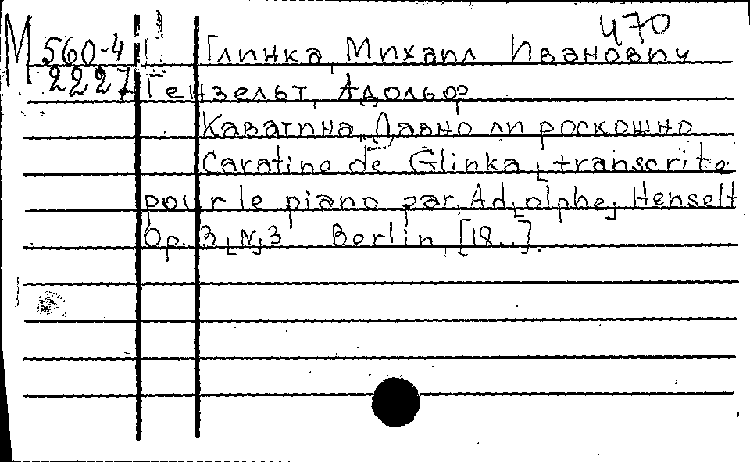 470
М 560-4 Глинка, Михаил Иванович
2227 Гензельт, Адольф
Каватина Давно ли роскошно
Cavatine de Glinka, transcrite
pour le piano par Ad[olphe] Henselt
Op. 3, N 3 Berlin, [18..].